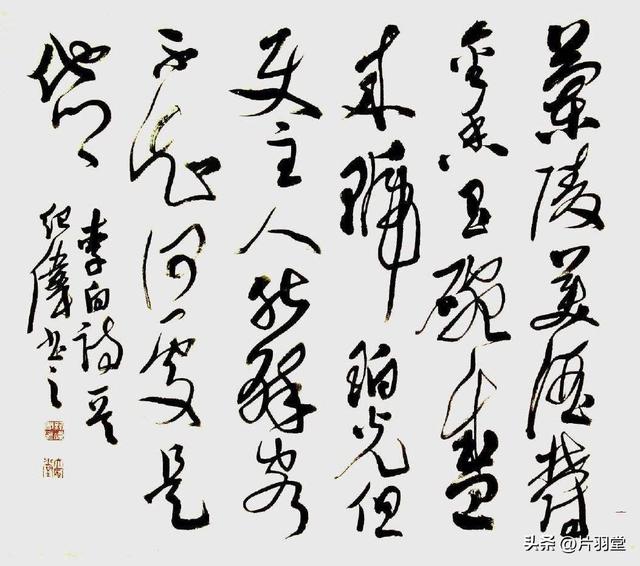 蘭陵美酒鬱
金香玉碗盛
来琥珀光但
使主人能醉客
不知何處是
他鄉
李白詩一首
書之
头条 @片羽堂